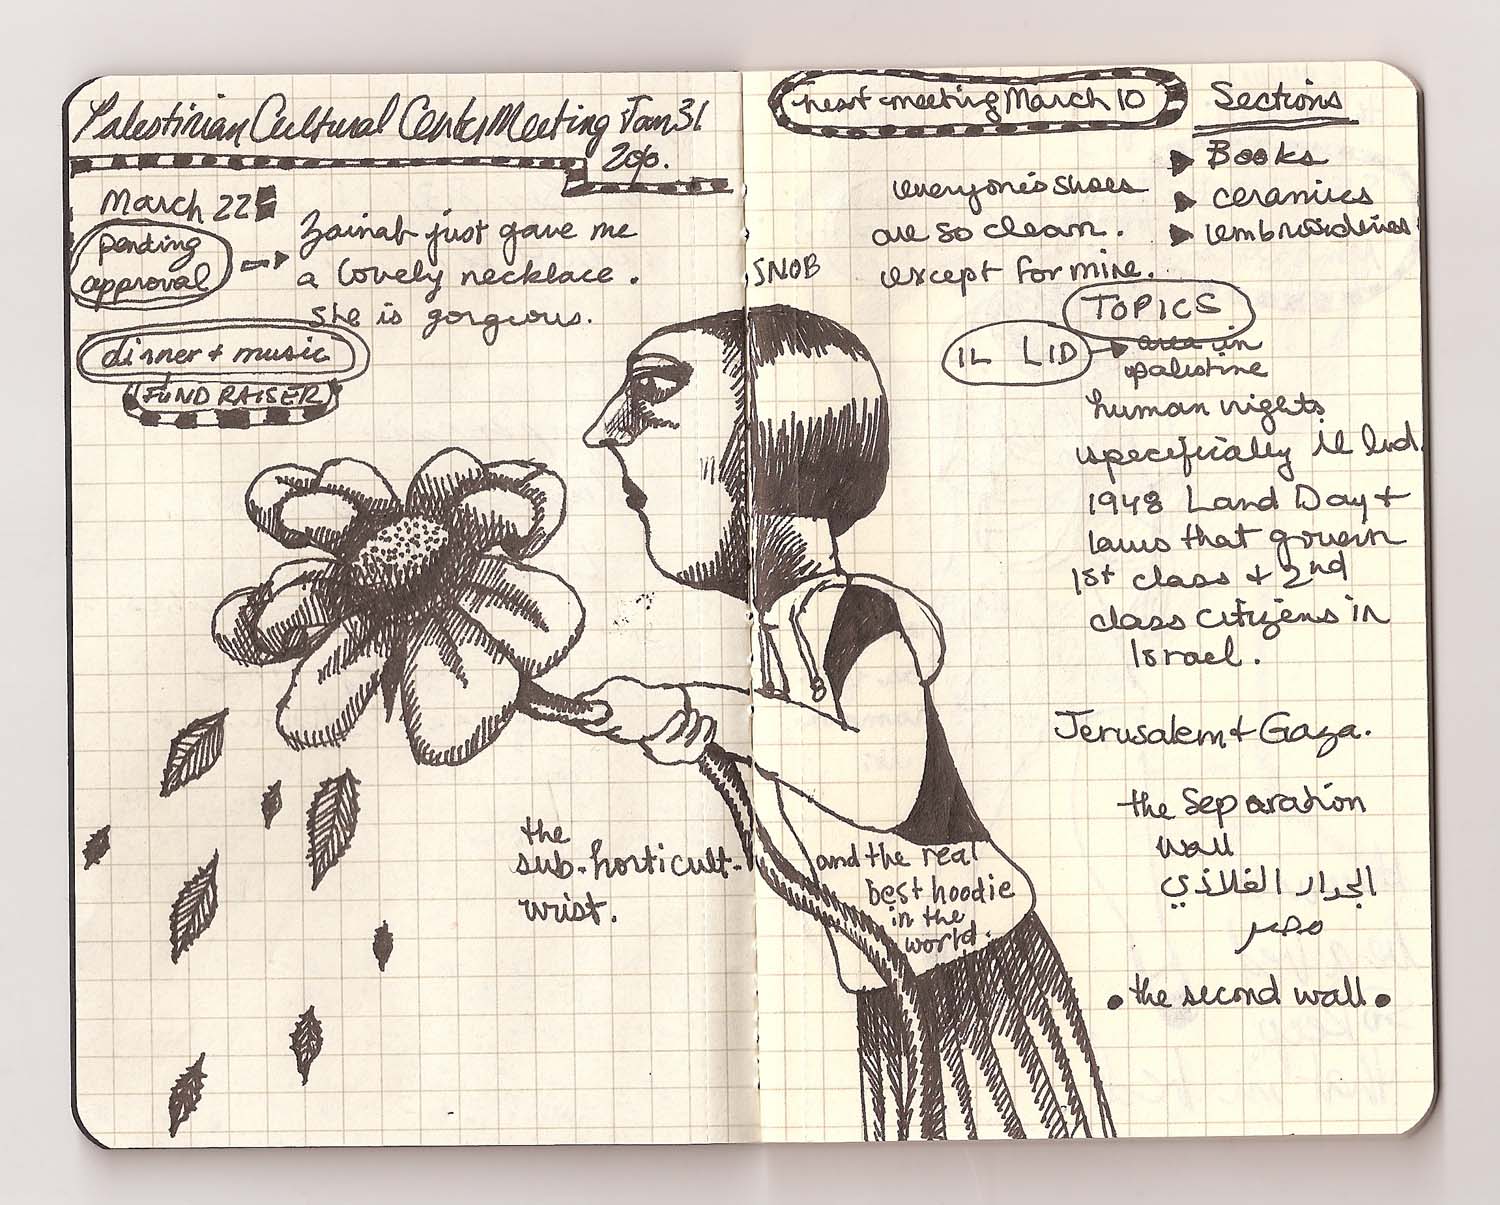 Palestinian Cultural Center Meeting Jan 31
2010.
March 22
pending
approval
Zainab just gave me
a lovely necklace.
she is gorgeous.
dinner + music
FUNDRAISER
the
sub-horticult-
wrist.
next meeting March 10
Sections
Books
ceramics
embroideries
everyone's shoes
are so clean.
except for mine.
SNOB
TOPICS
IL LID
area in
palestine
human rights
specifically il lid.
1948 Land Day +
laws that govern
1st class + 2nd
class citizens in
Israel.
Jerusalem + Gaza.
the Separation
wall
الجدار الفلاذي
مصر
• the second wall •
and the real
best hoodie
in the
world.